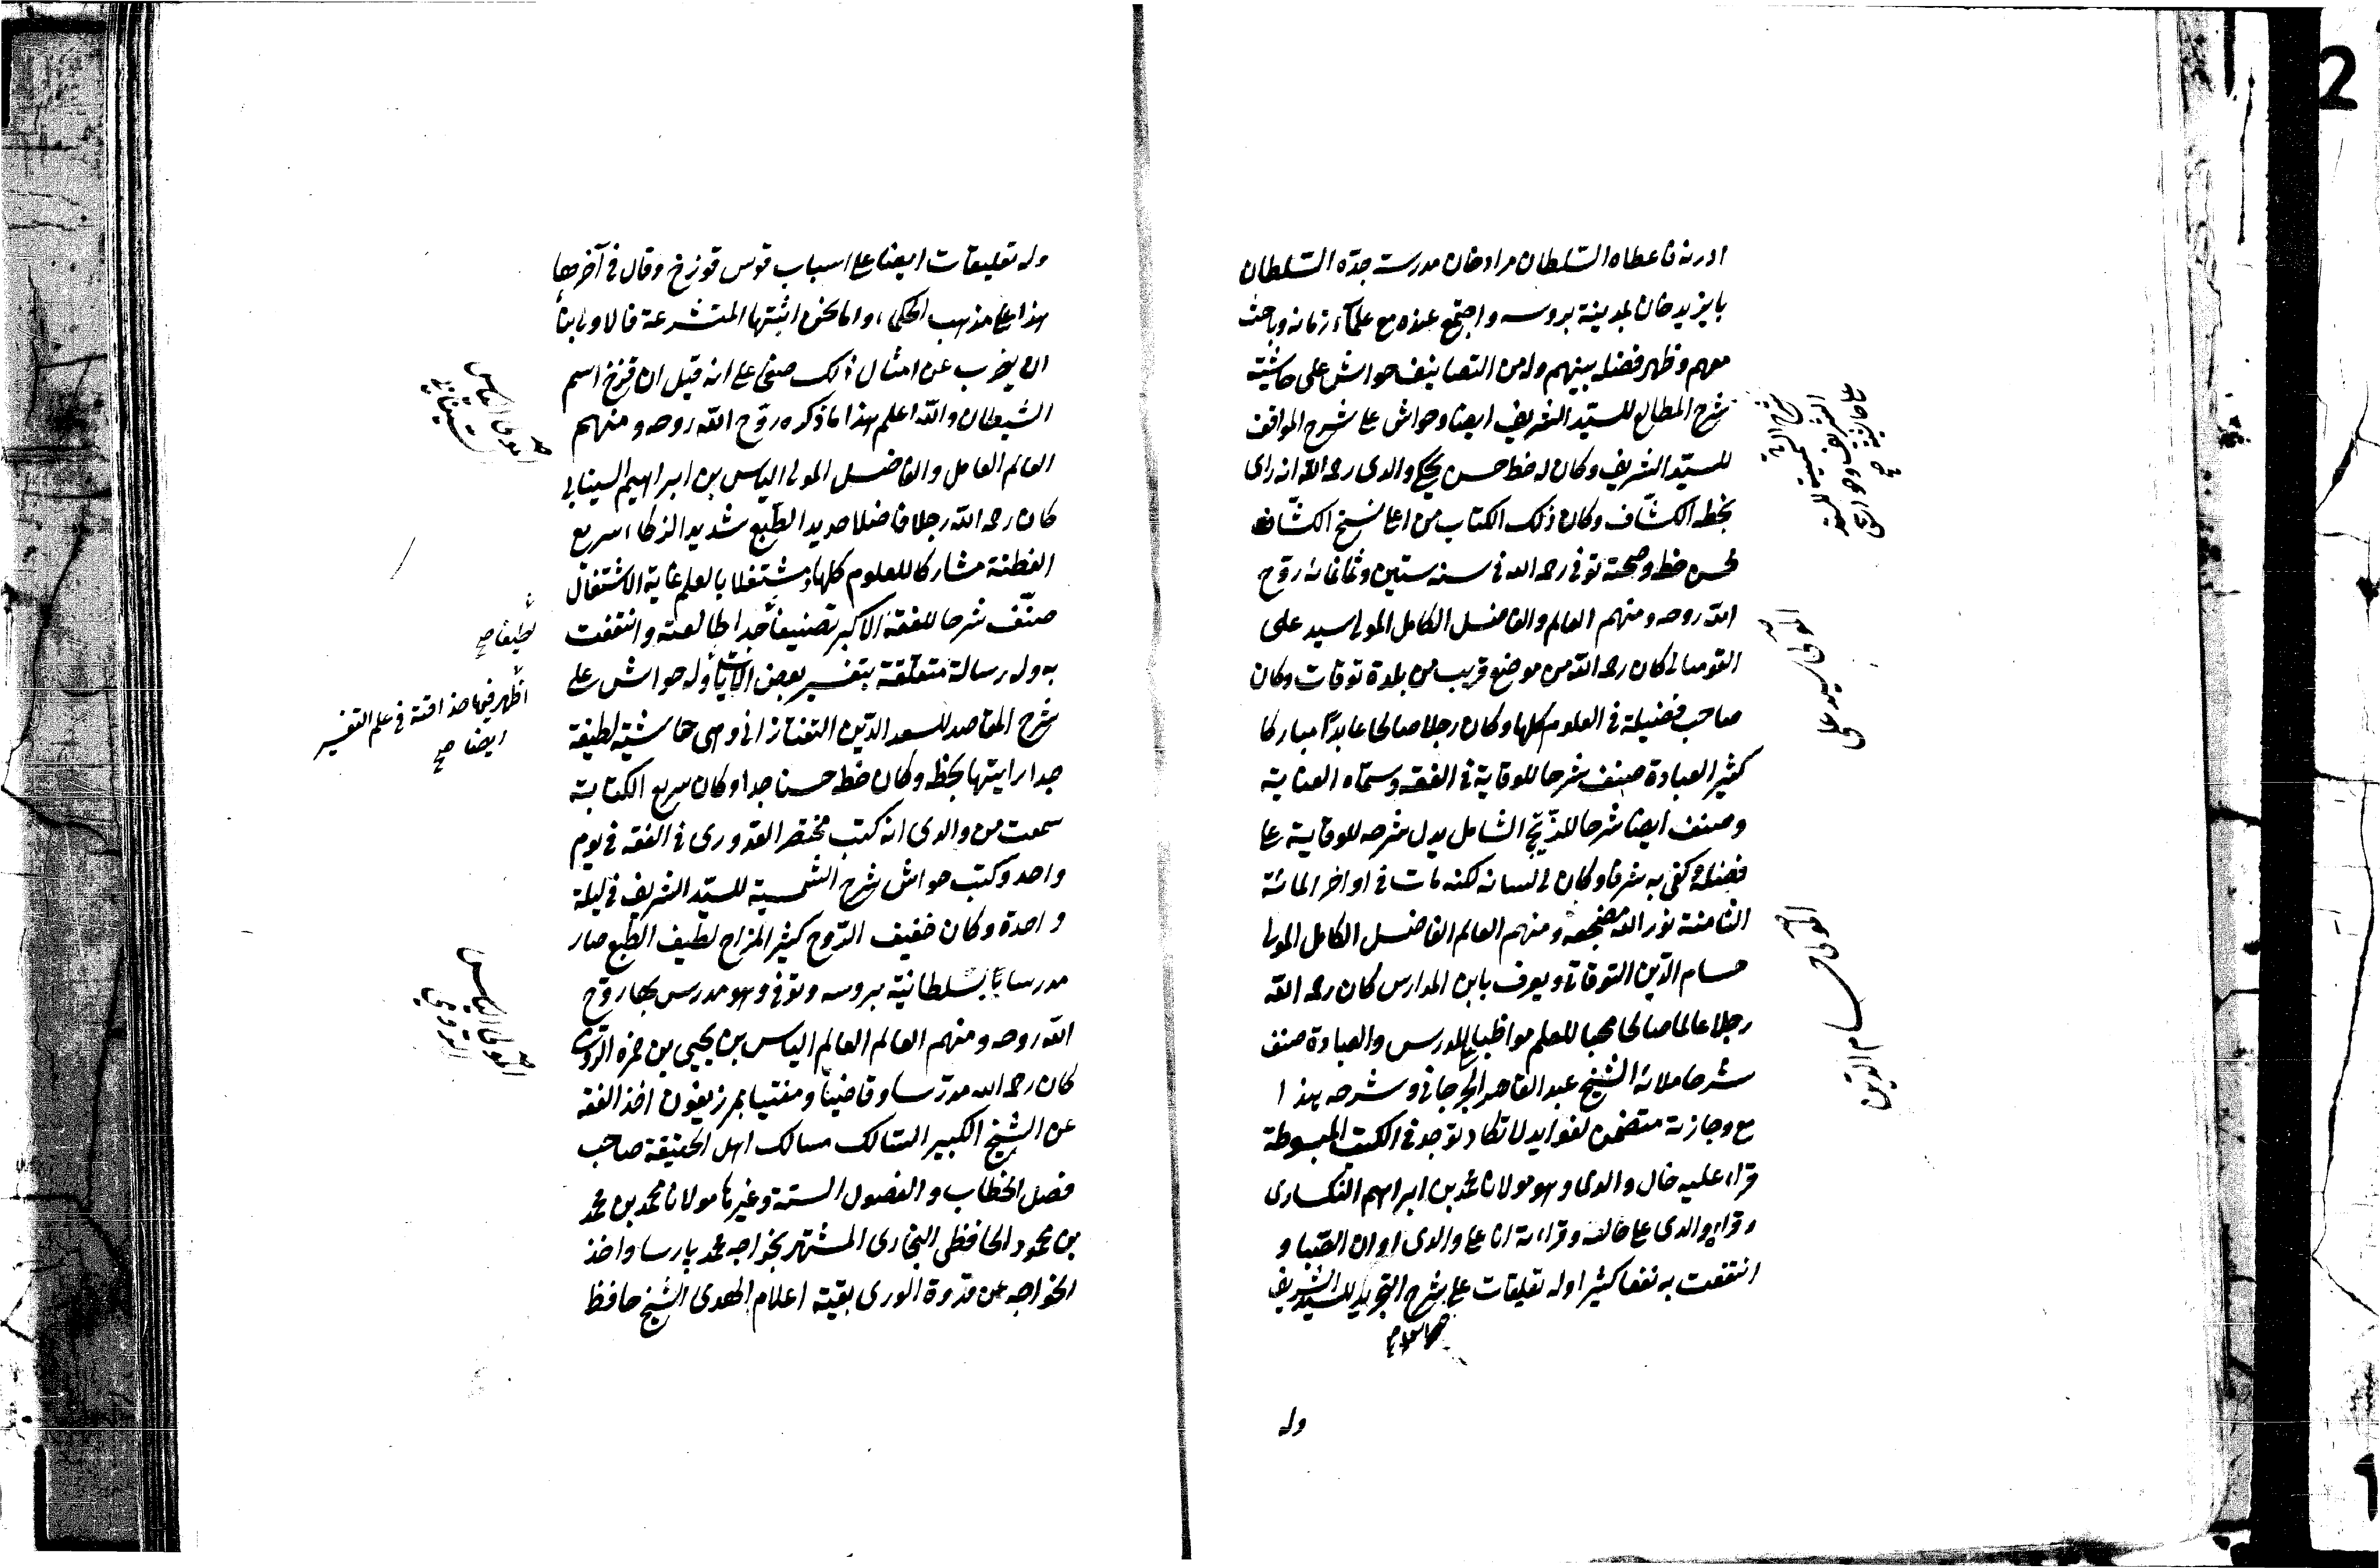 ادرنه فاعطاه السّلطان مراد خان مدرسة جدّه السّلطان
بايزيد خان بمدينة بروسه واجتمع عنده مع علمآء زمانه وباحث
معهم وظهر فضله بينهم وله من التصانيف حواش على حاشية
شرح المطالع للسيّد الشريف ايضا وحواش على شرح المواقف
شرح الشمسية للسيد
الشريف وحواش
على حاشية صح
للسيّد الشريف وكان له خط حسن يحكى والدى رحمه الله انه راى
بخطه الكشّاف وكان ذلك الكتاب من اعلا نسخ الكشّاف
لحسن خطه وصحته توفى رحمه الله فى سنه ستين وثمانمائه روّح
الله روحه ومنهم العالم والفاضل الكامل المولى سيد على
المولى سيد على
القومنالى كان رحمه الله من موضع قريب من بلدة توقات وكان
صاحب فضيلة فى العلوم كلها وكان رجلا صالحا عابدًا مباركا
كثير العبادة صنف شرحا للوقاية فى الفقه وسمّاه العناية
وصنف ايضا شرحا للزّيج الشامل يدل شرحه للوقاية على
فضله وكفى به شرفا وكان فى لسانه لكنه مات فى اواخر المائة
الثامنة نور الله مضجعه ومنهم العالم الفاضل الكامل المولى
المولى حسام الدين
حسام الدّين التوقاتى ويعرف بابن المدارس كان رحمه الله
رجلا عالما صالحا محبا للعلم مواظبا للدرس والعبادة صنف
شرحا لمائة الشيخ عبد القاهر الجرجانى وشرحه هذا
مع وجازته متضمن لفوايد لا تكاد توجد فى الكتب المبسوطة
قراء عليه خال والدى وهو مولانا محمد بن ابراهيم النكسارى
وقراء والدى على خاله وقراءته انا على والدى اوان الصّبا و
انتفعت به نفعا كثيرا وله تعليقات على شرح التجريد للسيد الشريف
وله
وله تعليقات ايضا على اسباب قوس قوزخ وقال فى آخرها
هذا على مذهب الحكماء واما نحن اثبتها المتشرعة فالاولى بنا
ان يضرب عن امثال ذلك صفحا على انه قيل ان قزخ اسم
الشيطان والله اعلم هذا ما ذكره روّح الله روحه ومنهم
المولى الياس
السينابى
العالم العامل والفاضل المولى الياس بن ابراهيم السينابى
كان رحمه الله رجلا فاضلا حديد الطّبع شديد الذكاء سريع
الفطنة مشاركا للعلوم كلها ومشتغلا بالعلم غاية الاشتغال
صنّف شرحا للفقه الاكبر تصنيفا جدا طالعته وانتفعت
لطيفا صح
به وله رسالة متعلقة بتفسير بعض الآيات وله حواش على
اظهر فيها حذاقته فى علم التفسير
ايضا صح
شرح المقاصد للسعد الدّين التفتازانى وهى حاشية لطيفة
جدا رايتها بخطه وكان خطه حسنا جدا وكان سريع الكتابة
سمعت من والدى انه كتب مختصر القدورى فى الفقه فى يوم
واحد وكتب حواش شرح الشمسية للسيّد الشريف فى ليلة
واحدة وكان خفيف الرّوح كثير المزاح لطيف الطبع صار
مدرسا بسلطانية بروسه وتوفى وهو مدرس بها روّح
الله روحه ومنهم العالم العالم الياس بن يحيى بن حمزه الرومى
المولى الياس
الرومى
كان رحمه الله مدرّسا وقاضيا ومفتيا بمرزيفون اخذ الفقه
عن الشيخ الكبير السالك مسالك اهل الحقيقة صاحب
فصل الخطاب والفصول الستة وغيرها مولانا محمد بن محمد
بن محمود الحافظى البخارى المشتهر بخواجه محمد پارسا واخذ
الخواجه عن قدوة الورى بقية اعلام الهدى الشيخ حافظ